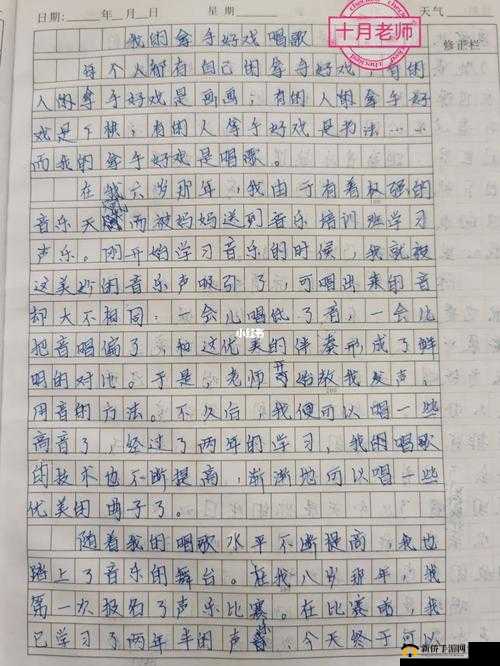 日期： 年 月 日 星期 天气
十月老师
修正栏
我的拿手好戏唱歌
每个人都有自己的拿手好戏，有的
人的拿手好戏是画画；有的人的拿手好
戏是下棋；有的人拿手好戏是书法……
而我的拿手好戏是唱歌。
在我六岁那年，我由于有着极强的
音乐天赋而被妈妈送到音乐培训班学习
声乐。刚开始学习音乐的时候，我就被
这美妙的音乐声吸引了，可唱出来的音
却大不相同：一会儿唱低了音，一会儿
把音唱偏了，和这优美的伴奏形成了鲜
明的对比。于是，老师开始教我发声，
用音的方法。不久后，我便可以唱一些
高音了，经过了两年的学习，我的唱歌
的技术也不断提高，渐渐地可以唱一些
优美的曲子了。
随着我的唱歌水平不断提高，我也
踏上了音乐的舞台。在我八岁那年，我
第一次报名了声乐比赛。在比赛前，我
已学习了两年半的声乐，今天终于可以
小红书
新侨手游网